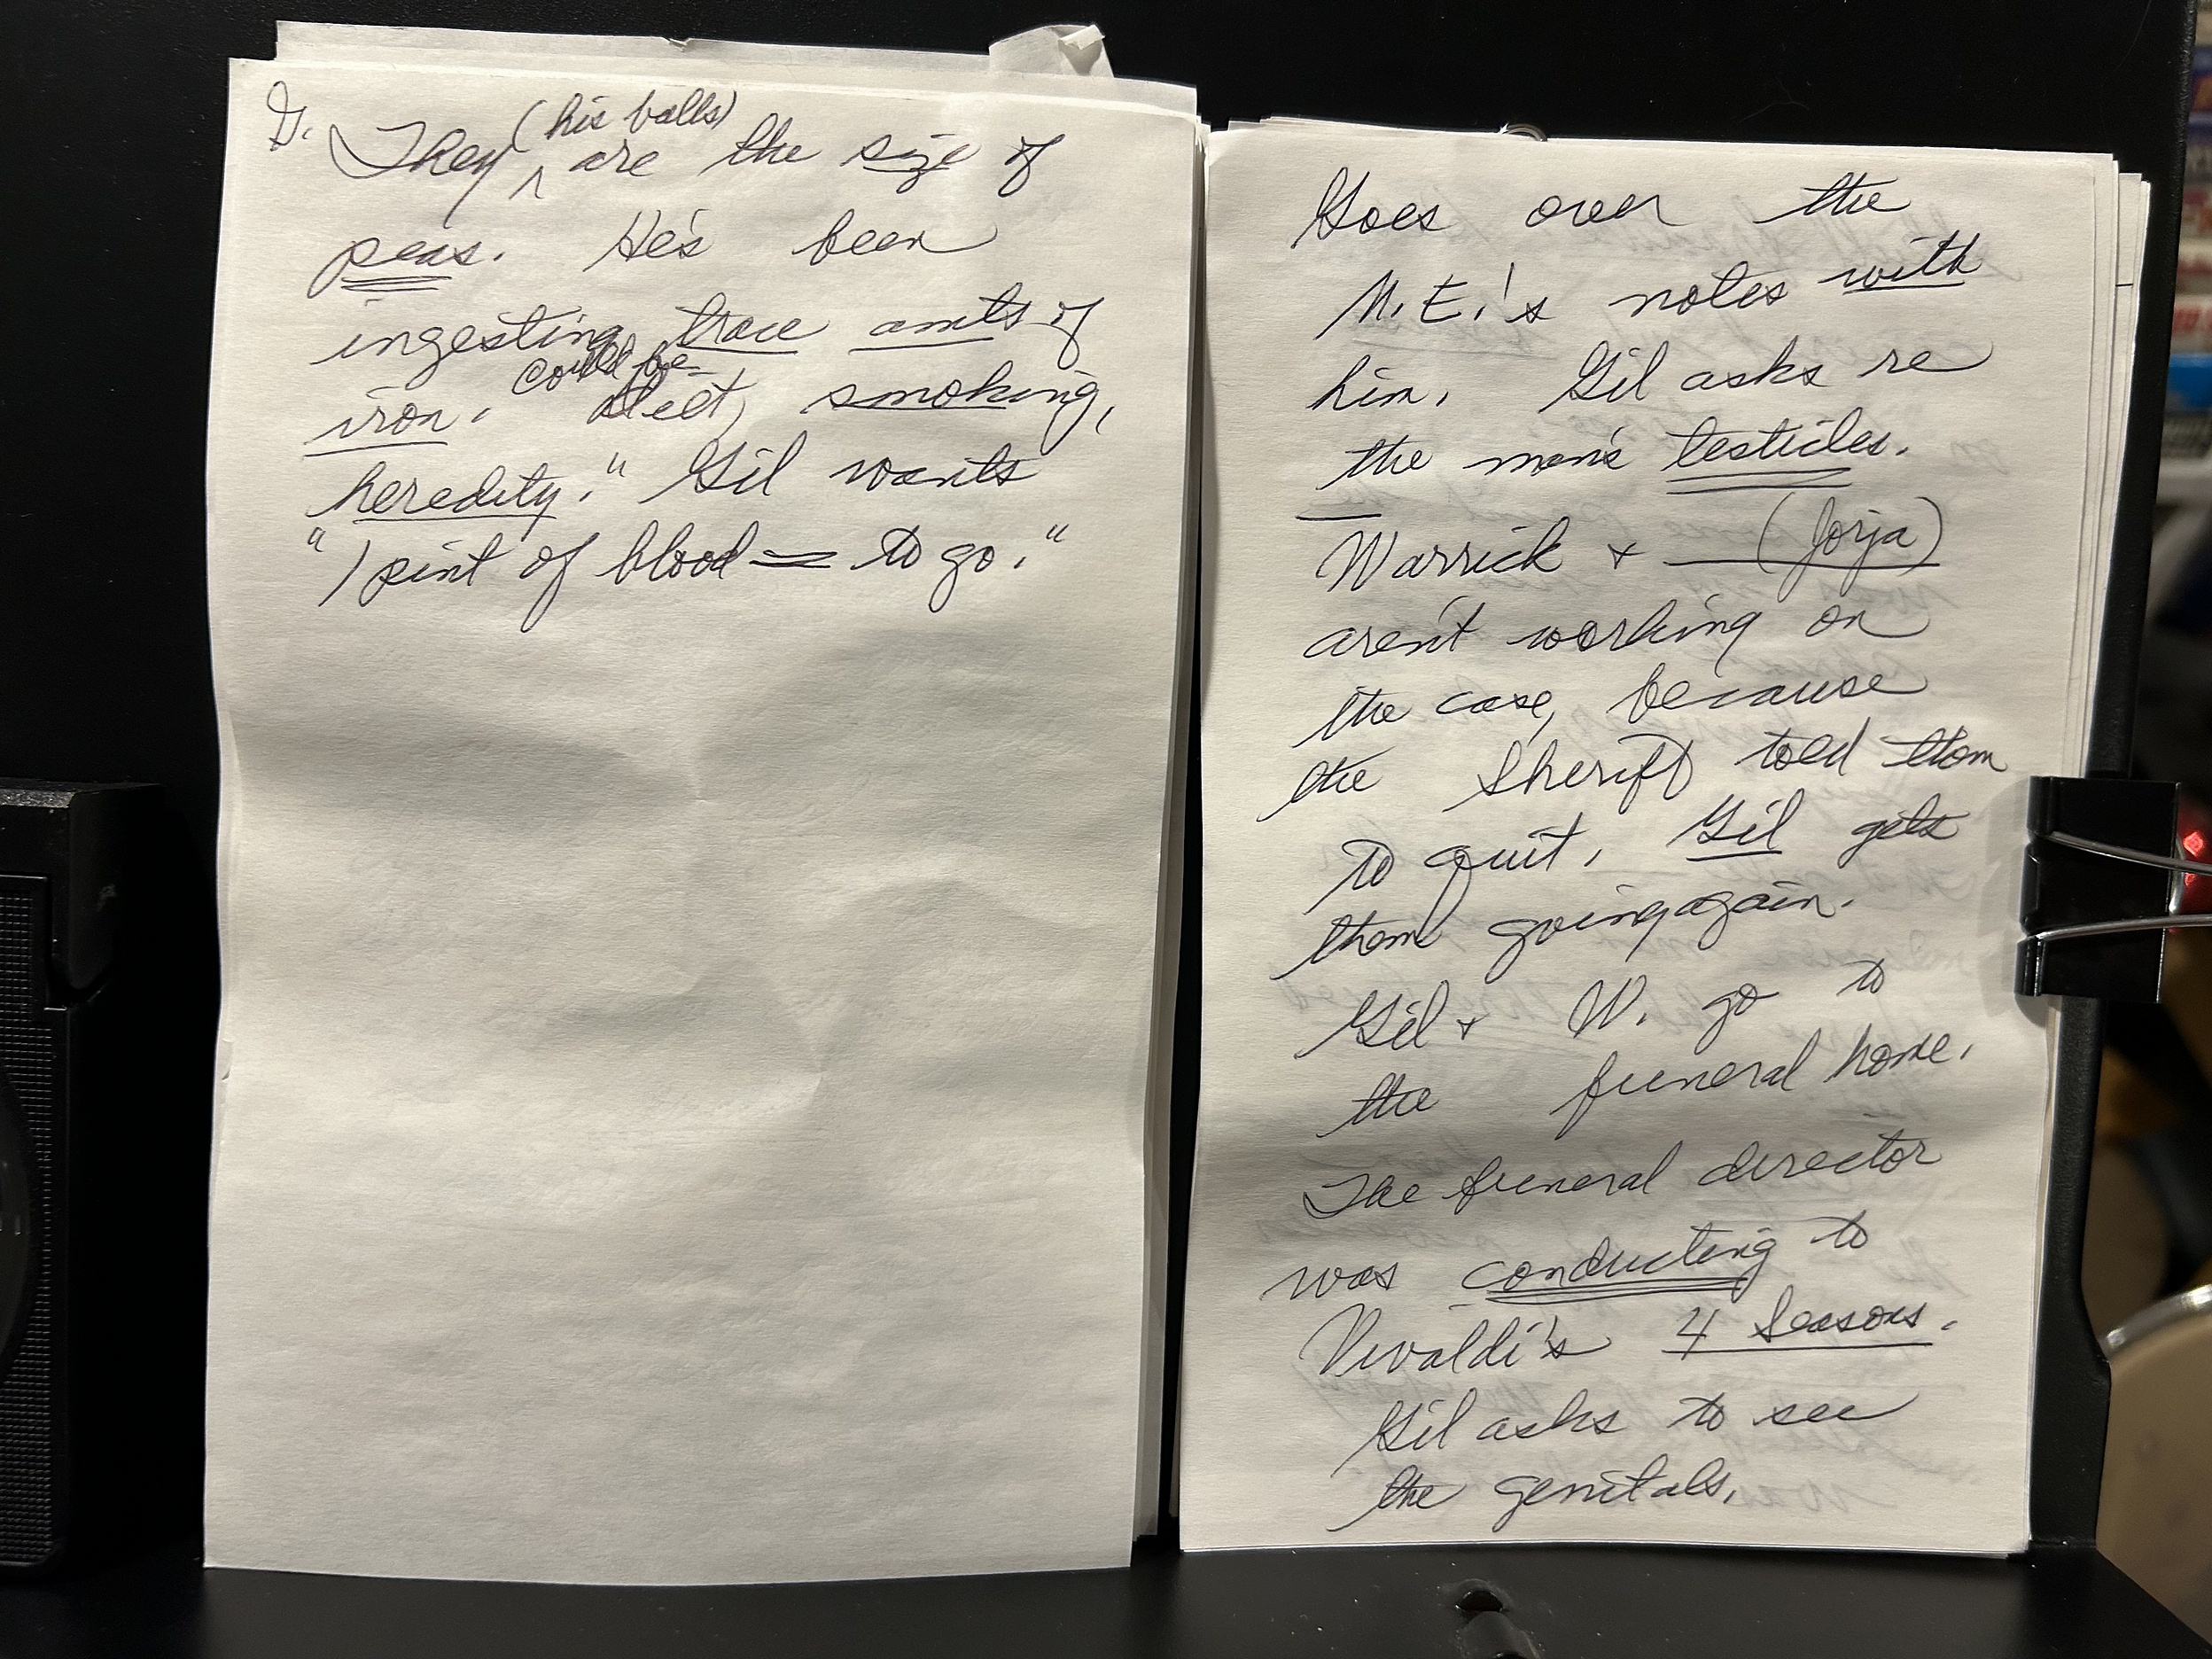 G. They (his balls) are the size of
peas. He's been
ingesting trace amts of
iron. could be diet, smoking,
heredity." Gil wants
"1 pint of blood — to go."
Goes over the
M.E.'s notes with
him. Gil asks re
the man's testicles.
Warrick + (Jorja)
aren't working on
the case, because
the Sheriff told them
to quit. Gil gets
them going again.
Gil + W. go to
the funeral home.
The funeral director
was conducting to
Vivaldi's 4 Seasons.
Gil asks to see
the genitals.